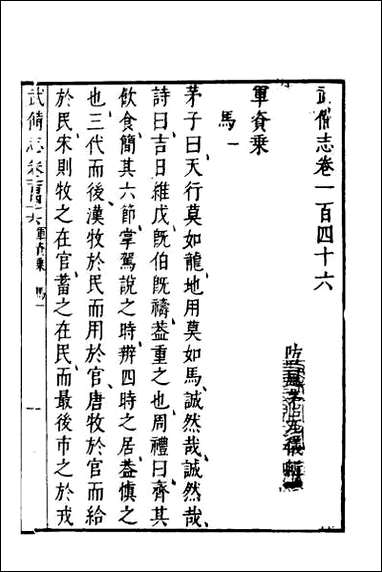 武備志卷一百四十六
防風茅元儀輯
軍資乗
馬一
茅子曰天行莫如龍地用莫如馬誠然哉誠然哉
詩曰吉日維戊既伯既禱葢重之也周禮曰齊其
飲食簡其六節掌駕說之時辨四時之居葢慎之
也三代而後漢牧於民而用於官唐牧於官而給
於民宋則牧之在官蓄之在民而最後市之於戎
武備志卷一百四十六 軍資乗 馬一 一